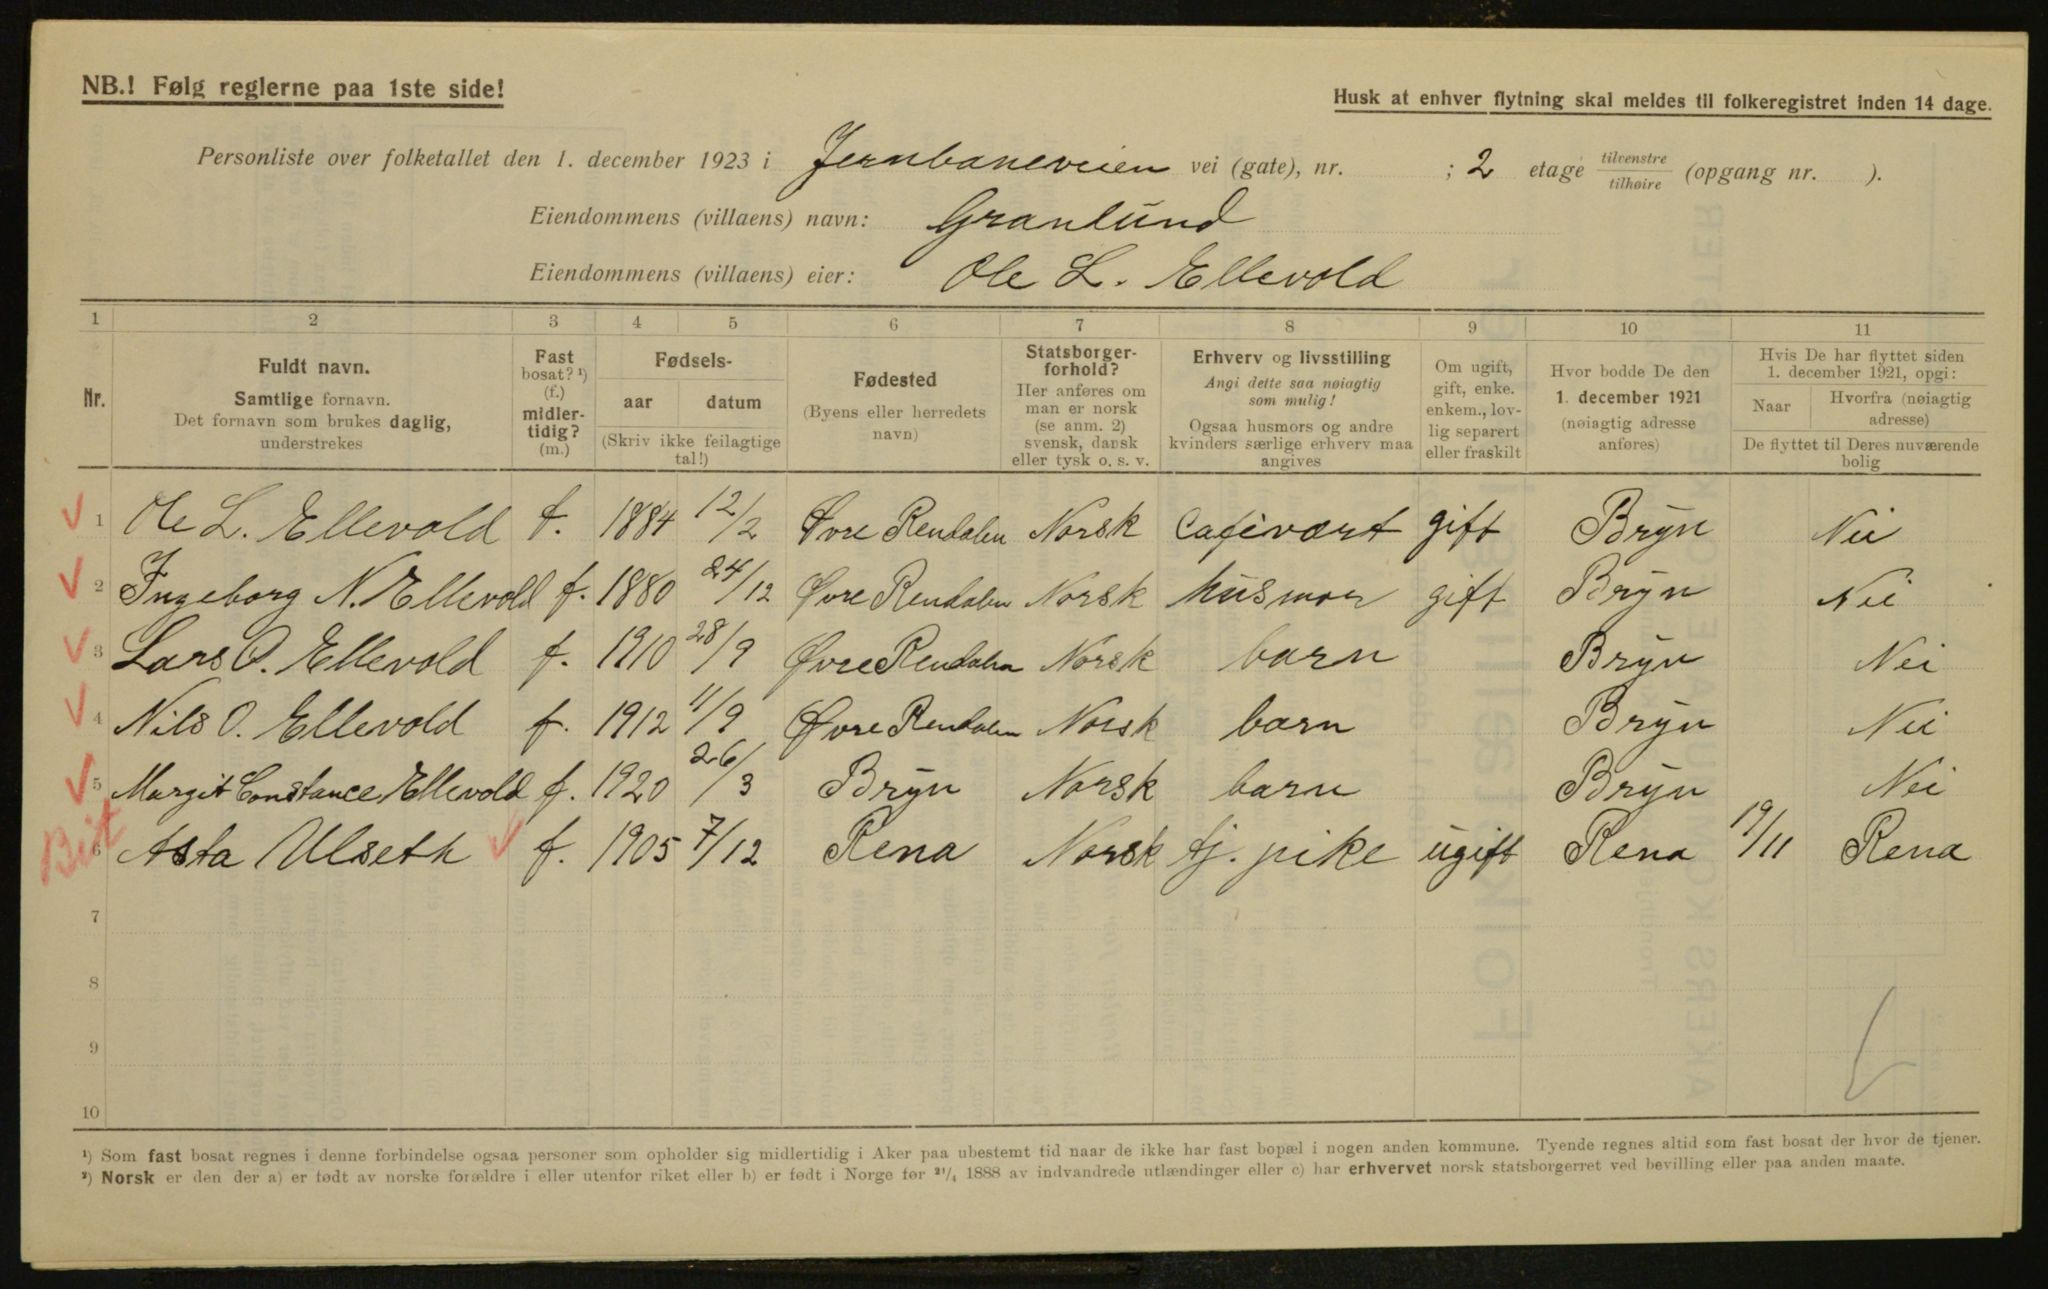 NB.! Følg reglerne paa 1ste side!
Husk at enhver flytning skal meldes til folkeregistret inden 14 dage.
Personliste over folketallet den 1. december 1923 i Jernbaneveien vei (gate), nr. ; 2 etage tilvenstre tilhøire (opgang nr. ).
Eiendommens (villaens) navn: Granlund
Eiendommens (villaens) eier: Ole L. Ellevold
1 2 3 4 5 6 7 8 9 10 11
Nr.
Fuldt navn.
Samtlige fornavn.
Det fornavn som brukes daglig,
understrekes
Fast
bosat? ¹)
(f.)
midler-
tidig?
(m.)
Fødsels-
aar datum
(Skriv ikke feilagtige
tal!)
Fødested
(Byens eller herredets
navn)
Statsborger-
forhold?
Her anføres om
man er norsk
(se anm. 2)
svensk, dansk
eller tysk o. s. v.
Erhverv og livsstilling
Angi dette saa nøiagtig
som mulig!
Ogsaa husmors og andre
kvinders særlige erhverv maa
angives
Om ugift,
gift, enke.
enkem., lov-
lig separert
eller fraskilt
Hvor bodde De den
1. december 1921
(nøiagtig adresse
anføres)
Hvis De har flyttet siden
1. december 1921, opgi:
Naar
Hvorfra (nøiagtig
adresse)
De flyttet til Deres nuværende
bolig
1 Ole L. Ellevold f. 1884 12/2 Øvre Rendalen Norsk Cafévært gift Bryn Nei
2 Ingeborg N. Ellevold f. 1880 24/12 Øvre Rendalen Norsk husmor gift Bryn Nei
3 Lars O. Ellevold f. 1910 28/9 Øvre Rendalen Norsk barn Bryn Nei
4 Nils O. Ellevold f. 1912 11/9 Øvre Rendalen Norsk barn Bryn Nei
5 Margit Constance Ellevold f. 1920 26/3 Bryn Norsk barn Bryn Nei
6 Asta Ulseth f. 1905 7/12 Rena Norsk tj. pike ugift Rena 19/11 Rena
7
8
9
10
¹) Som fast bosat regnes i denne forbindelse ogsaa personer som opholder sig midlertidig i Aker paa ubestemt tid naar de ikke har fast bopæl i nogen anden kommune. Tyende regnes altid som fast bosat der hvor de tjener.
²) Norsk er den der a) er født av norske forældre i eller utenfor riket eller b) er født i Norge før ²¹/₄ 1888 av indvandrede utlændinger eller c) har erhvervet norsk statsborgerret ved bevilling eller paa anden maate.